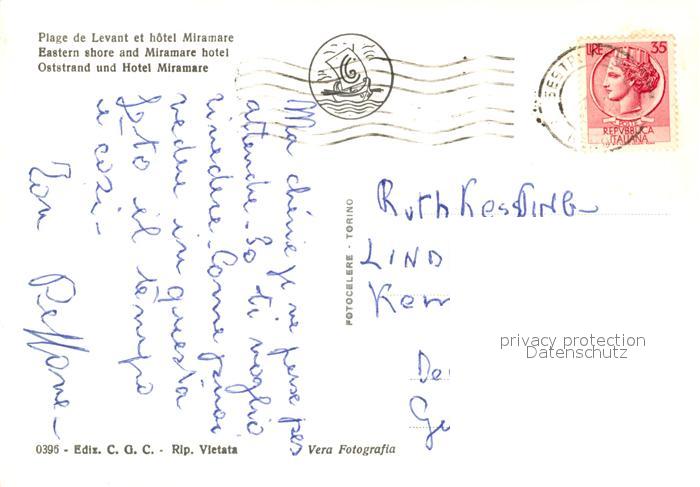 Plage de Levant et hôtel Miramare
Eastern shore and Miramare hotel
Oststrand und Hotel Miramare
LIRE 35
POSTE
REPVBBLICA
ITALIANA
SESTRI
Ma chérie je ne pense pas
attendre. Io ti voglio
rivedere. Come
vedere in questa
foto il tempo
e così-
Ton
FOTOCELERE - TORINO
Ruth
LIND
Kerr
De
Ge
privacy protection
Datenschutz
0396 - Ediz. C. G. C. - Rip. Vietata
Vera Fotografia